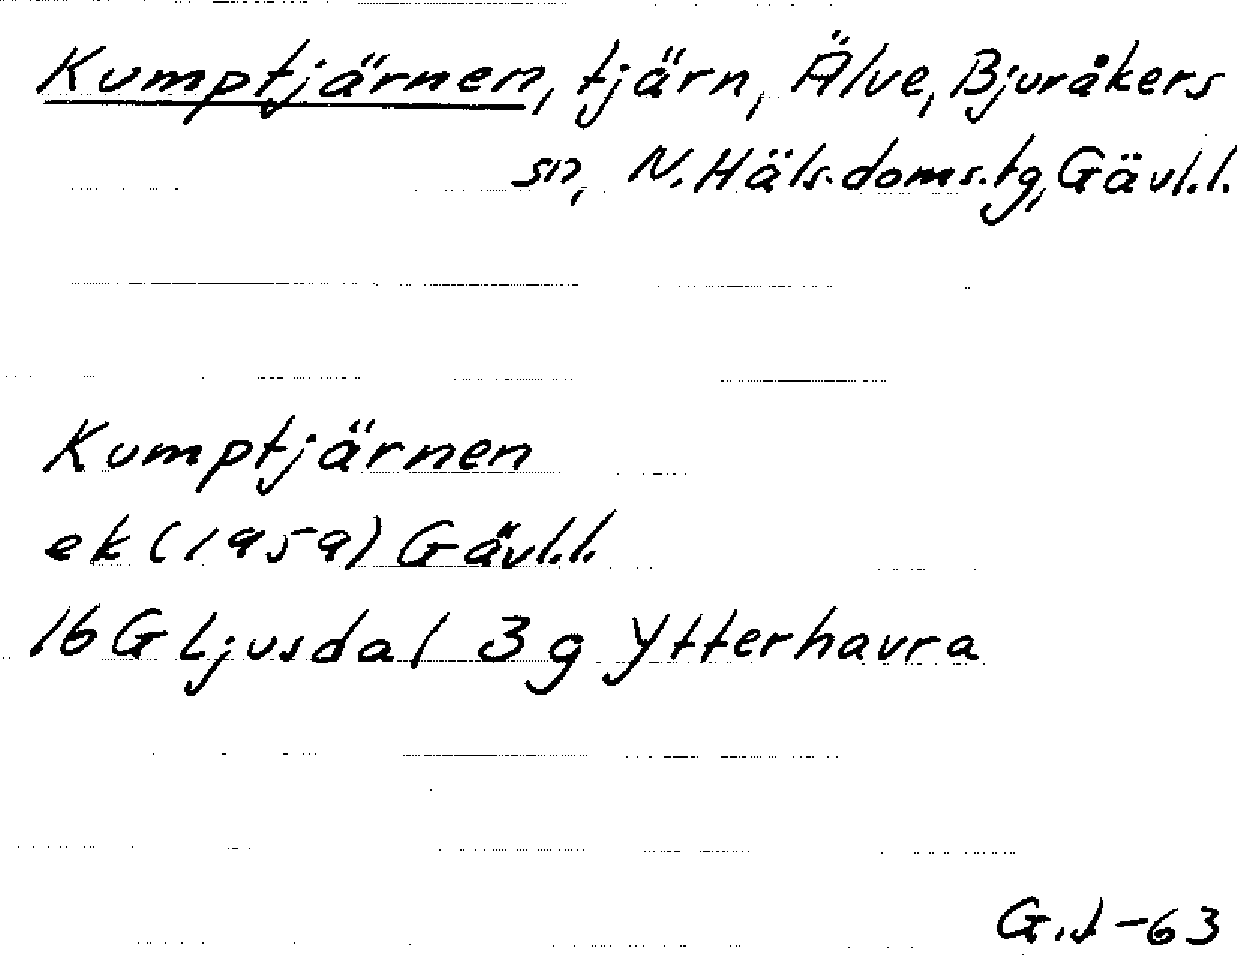 Kumptjärnen, tjärn, Älve, Bjuråkers
sn, N. Häls. doms.tg, Gävl.l.
Kumptjärnen
ek (1959) Gävl.l.
16 G Ljusdal 3 g Ytterhavra
-63